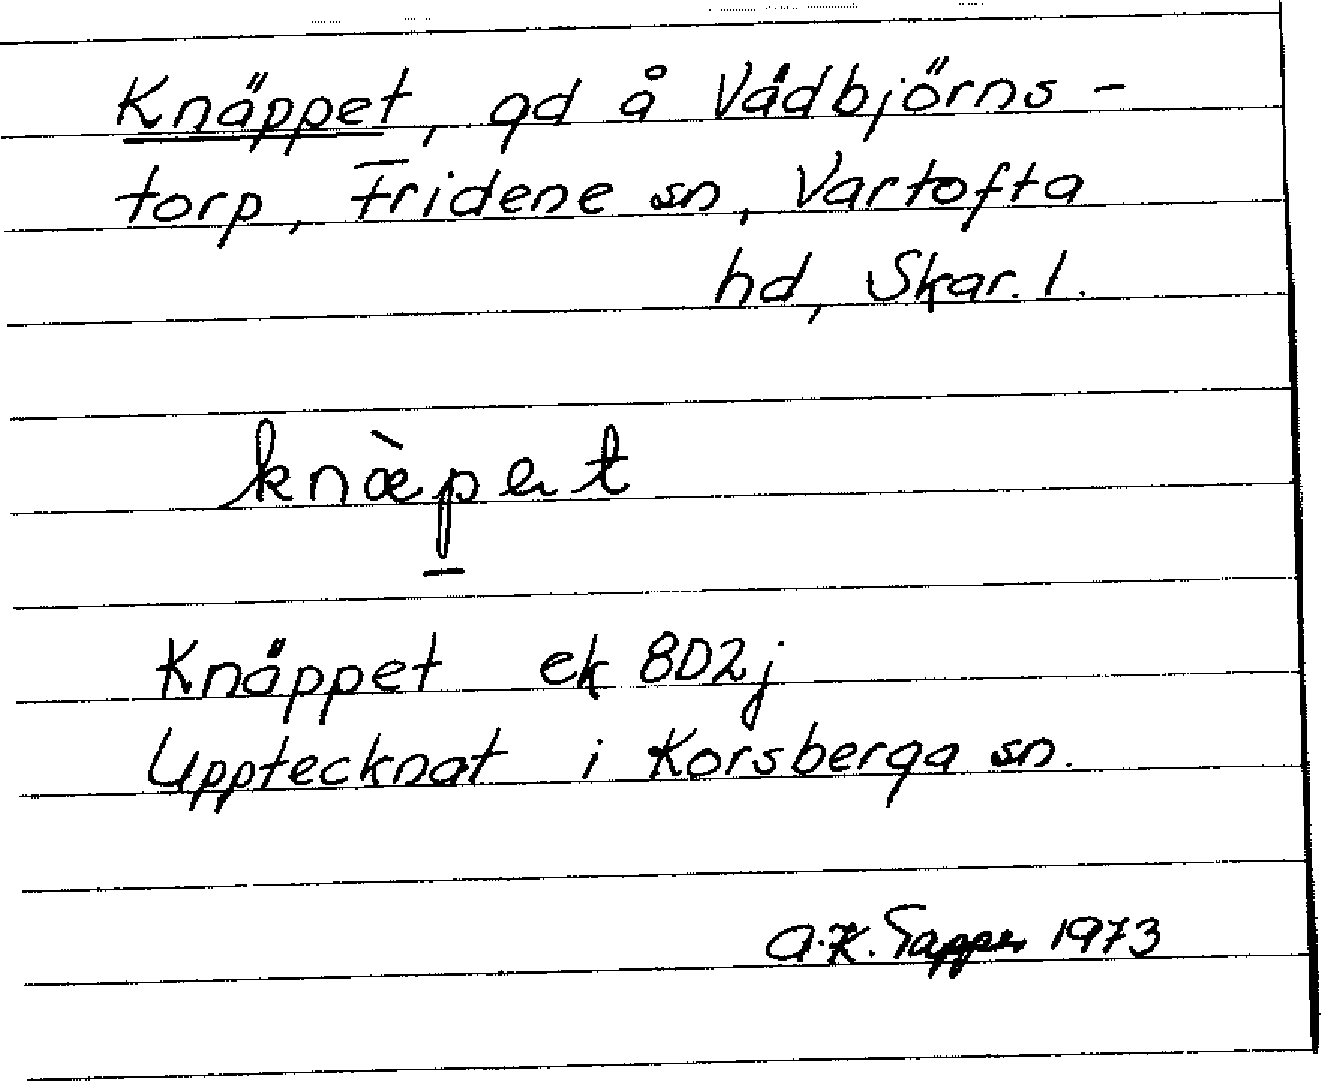 Knäppet, gd å Vådbjörns-
torp, Fridene sn, Vartofta
hd, Skar. l.
knæ̀pet
Knäppet ek 8D2j
Upptecknat i Korsberga sn.
A.K. Tapper 1973